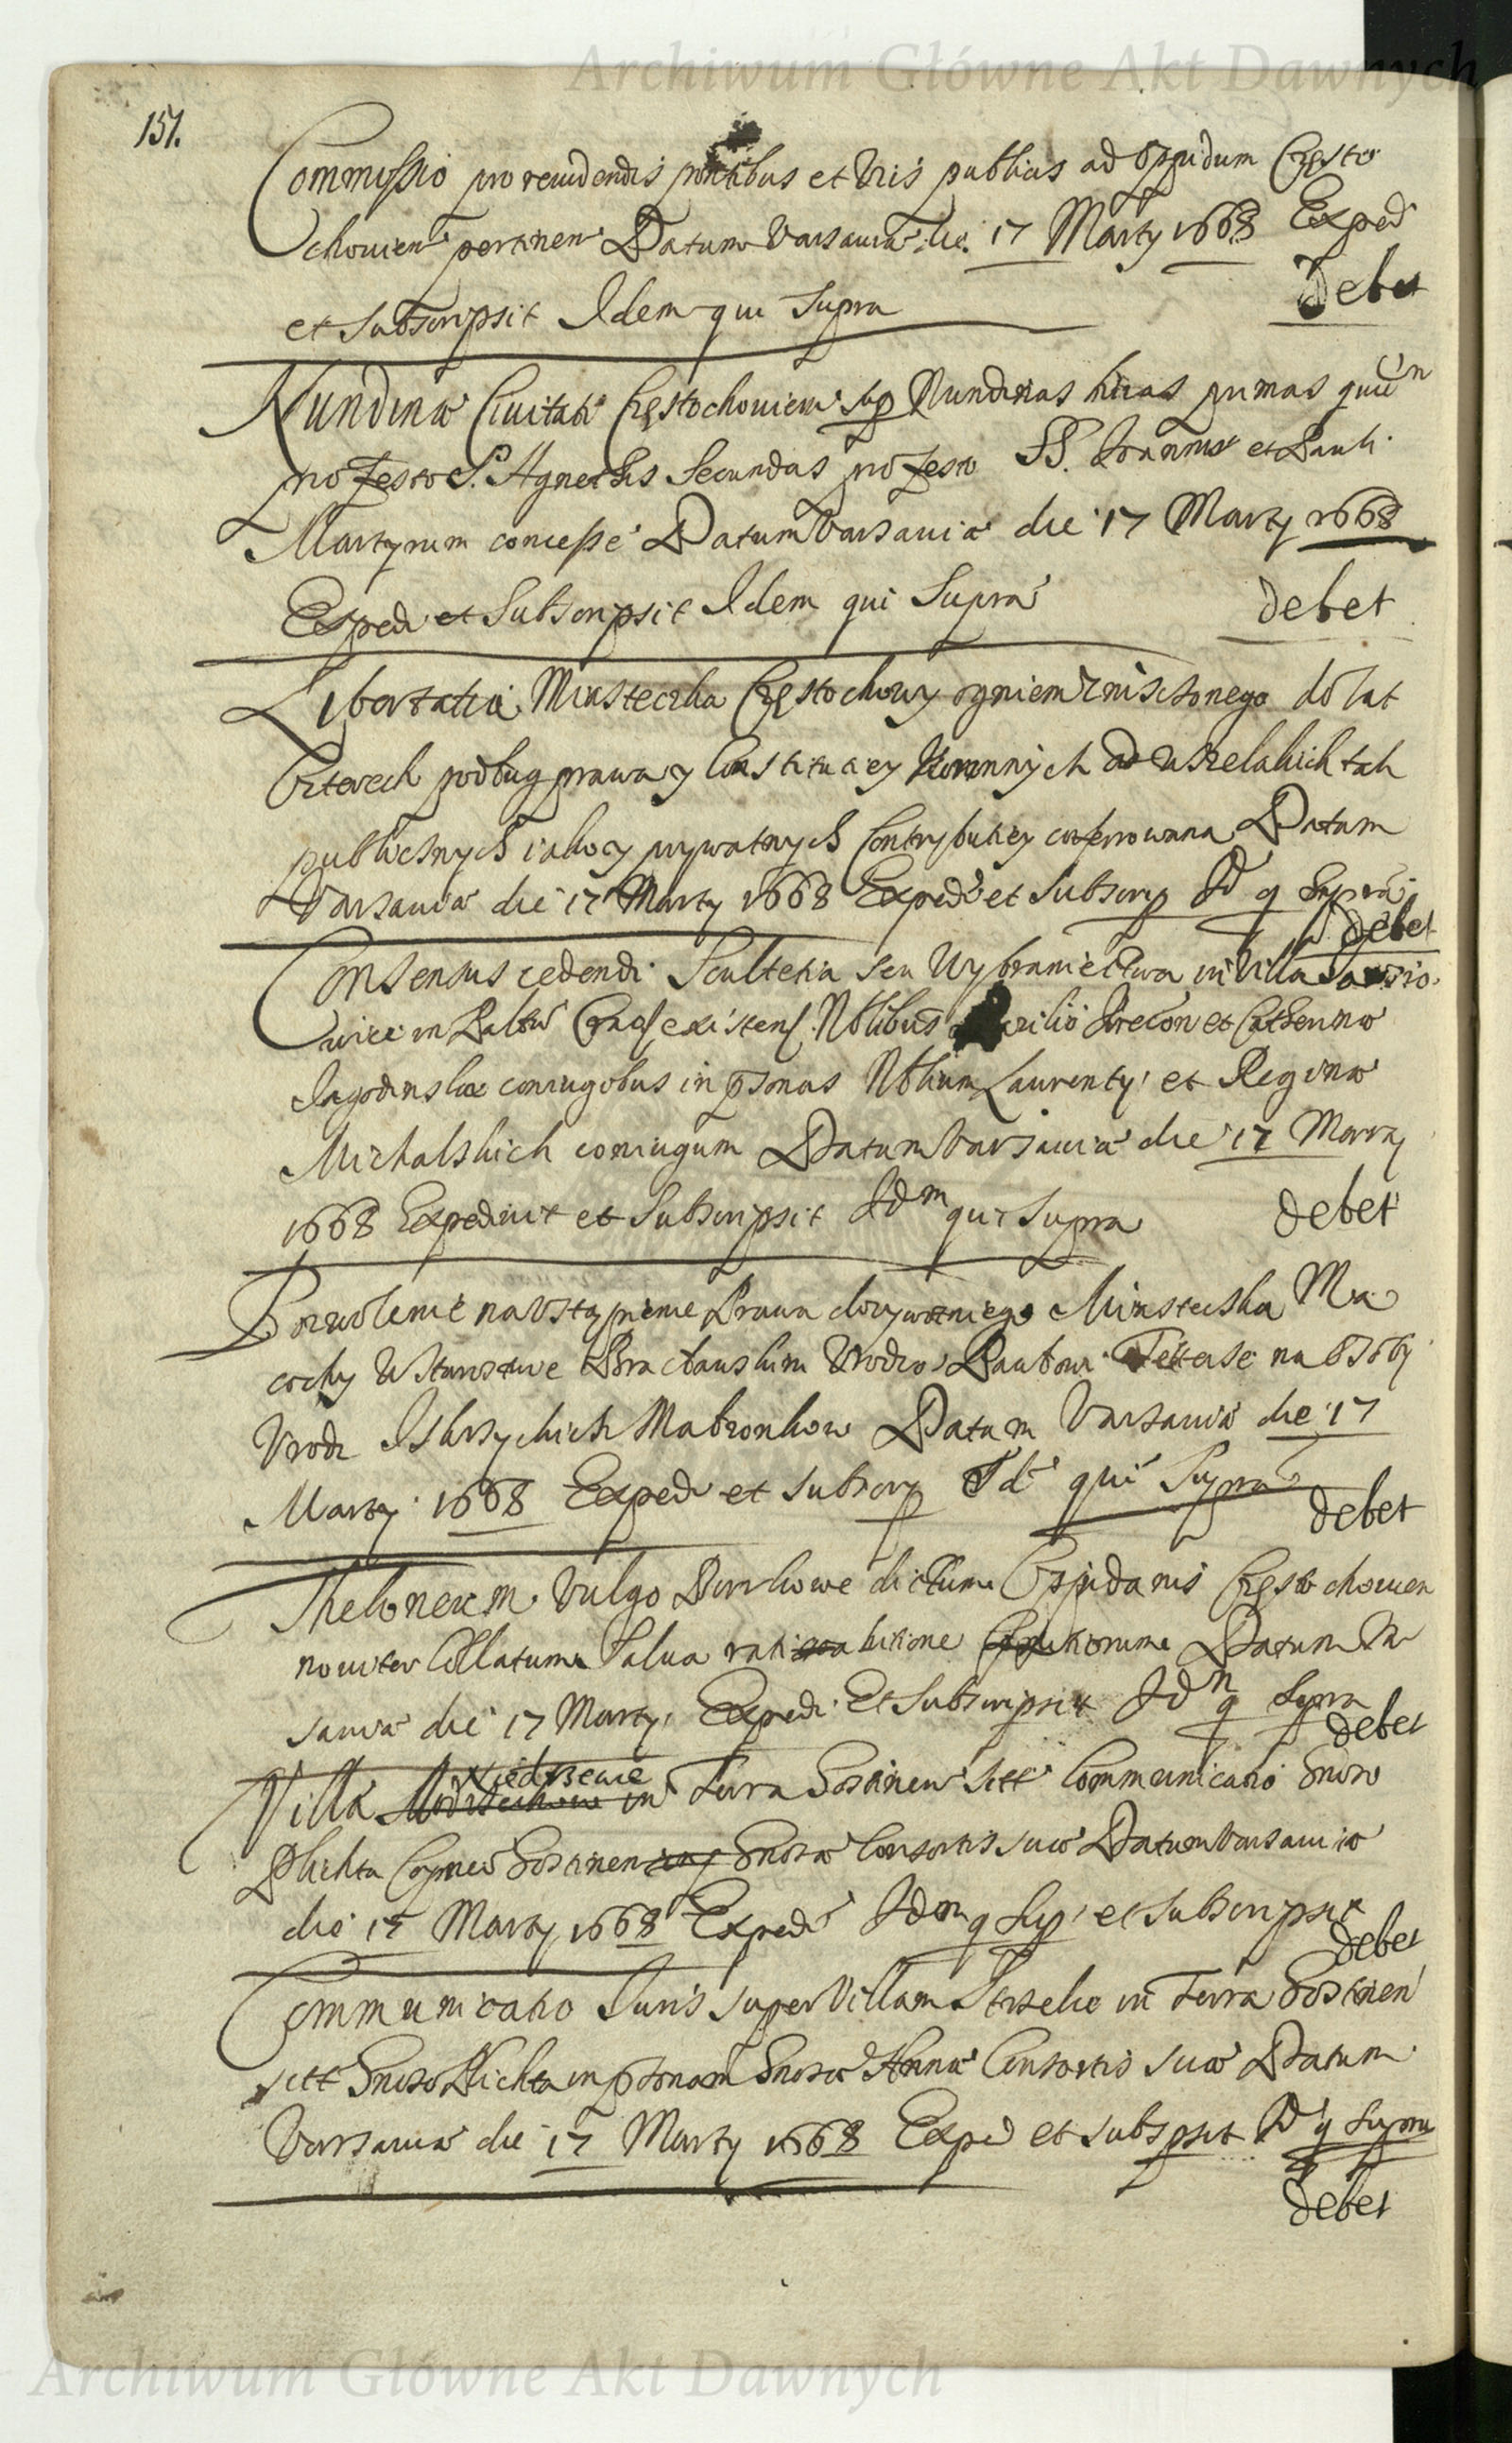 Archiwum Główne Akt Dawnych
151.
Commissio pro revidendis pontibus et viis publicis ad oppidum Często
chovien pertinen Datum Varsaviæ die 17 Marty 1668 Exped
et Subscripsit Idem qui Supra
debet
Nundinæ Civitati Częstochovien sup Nundinas binas primas
pro festo S. Agnethis Secundas pro festo SS. Joannis et Pauli
Martyrum concessæ Datum Varsaviæ die 17 Marty 1668
Exped et Subscripsit Idem qui Supra
debet
Libertatia Miasteczka Częstochowy ogniem zniszczonego do lat
czterech podług prawa y Constitucey Koronnych od wszelakich tak
publicznych iako y prywatnych Contrybuciey conferowana Datum
Varsaviæ die 17 Marty 1668 Exped et Subscrip Id q Supra
debet
Consensus cedendi Scultetia seu Wybraniectwa in Villa
in Palatu existen Nblibus et Catherinæ
Jagodinskie coniugibus in psonas Nblium Laurenty et Reginæ
Michalskich coniugum Datum Varsaviæ die 17 Marty
1668 Expedivit et Subscripsit Idm qui Supra
debet
Pozwolenie na Ustąpienie Prawa dożywotniego Miasteczka Ma
cochy W Starostwie Bracławskim Urodzo Pawłowi Teterze na Osoby
Urodz Małżonkow Datum Varsaviæ die 17
Marty 1668 Exped et subscrip Id qui Supra
debet
Theloneum Vulgo dictum Oppidanis Częstochovien
noviter Collatum Salva Datum Var
saviæ die 17 Marty Exped Et Subscripsit Idm q Supra
debet
Villa Niedrzewie in Terra Gostinen sitt Communicatio Gnoso
Plichta Gostinen Gnosæ Consortis suæ Datum Varsaviæ
die 17 Marty 1668 Exped Idm q Sup et subscripsit
debet
Communicatio Juris super Villam Strzelce in Terra Gostinen
sitt Gnoso Plichta in psonam Gnosæ Annæ Consortis suæ Datum
Varsaviæ die 17 Marty 1668 Exped et subspsit Id q Supra
debet
Archiwum Główne Akt Dawnych